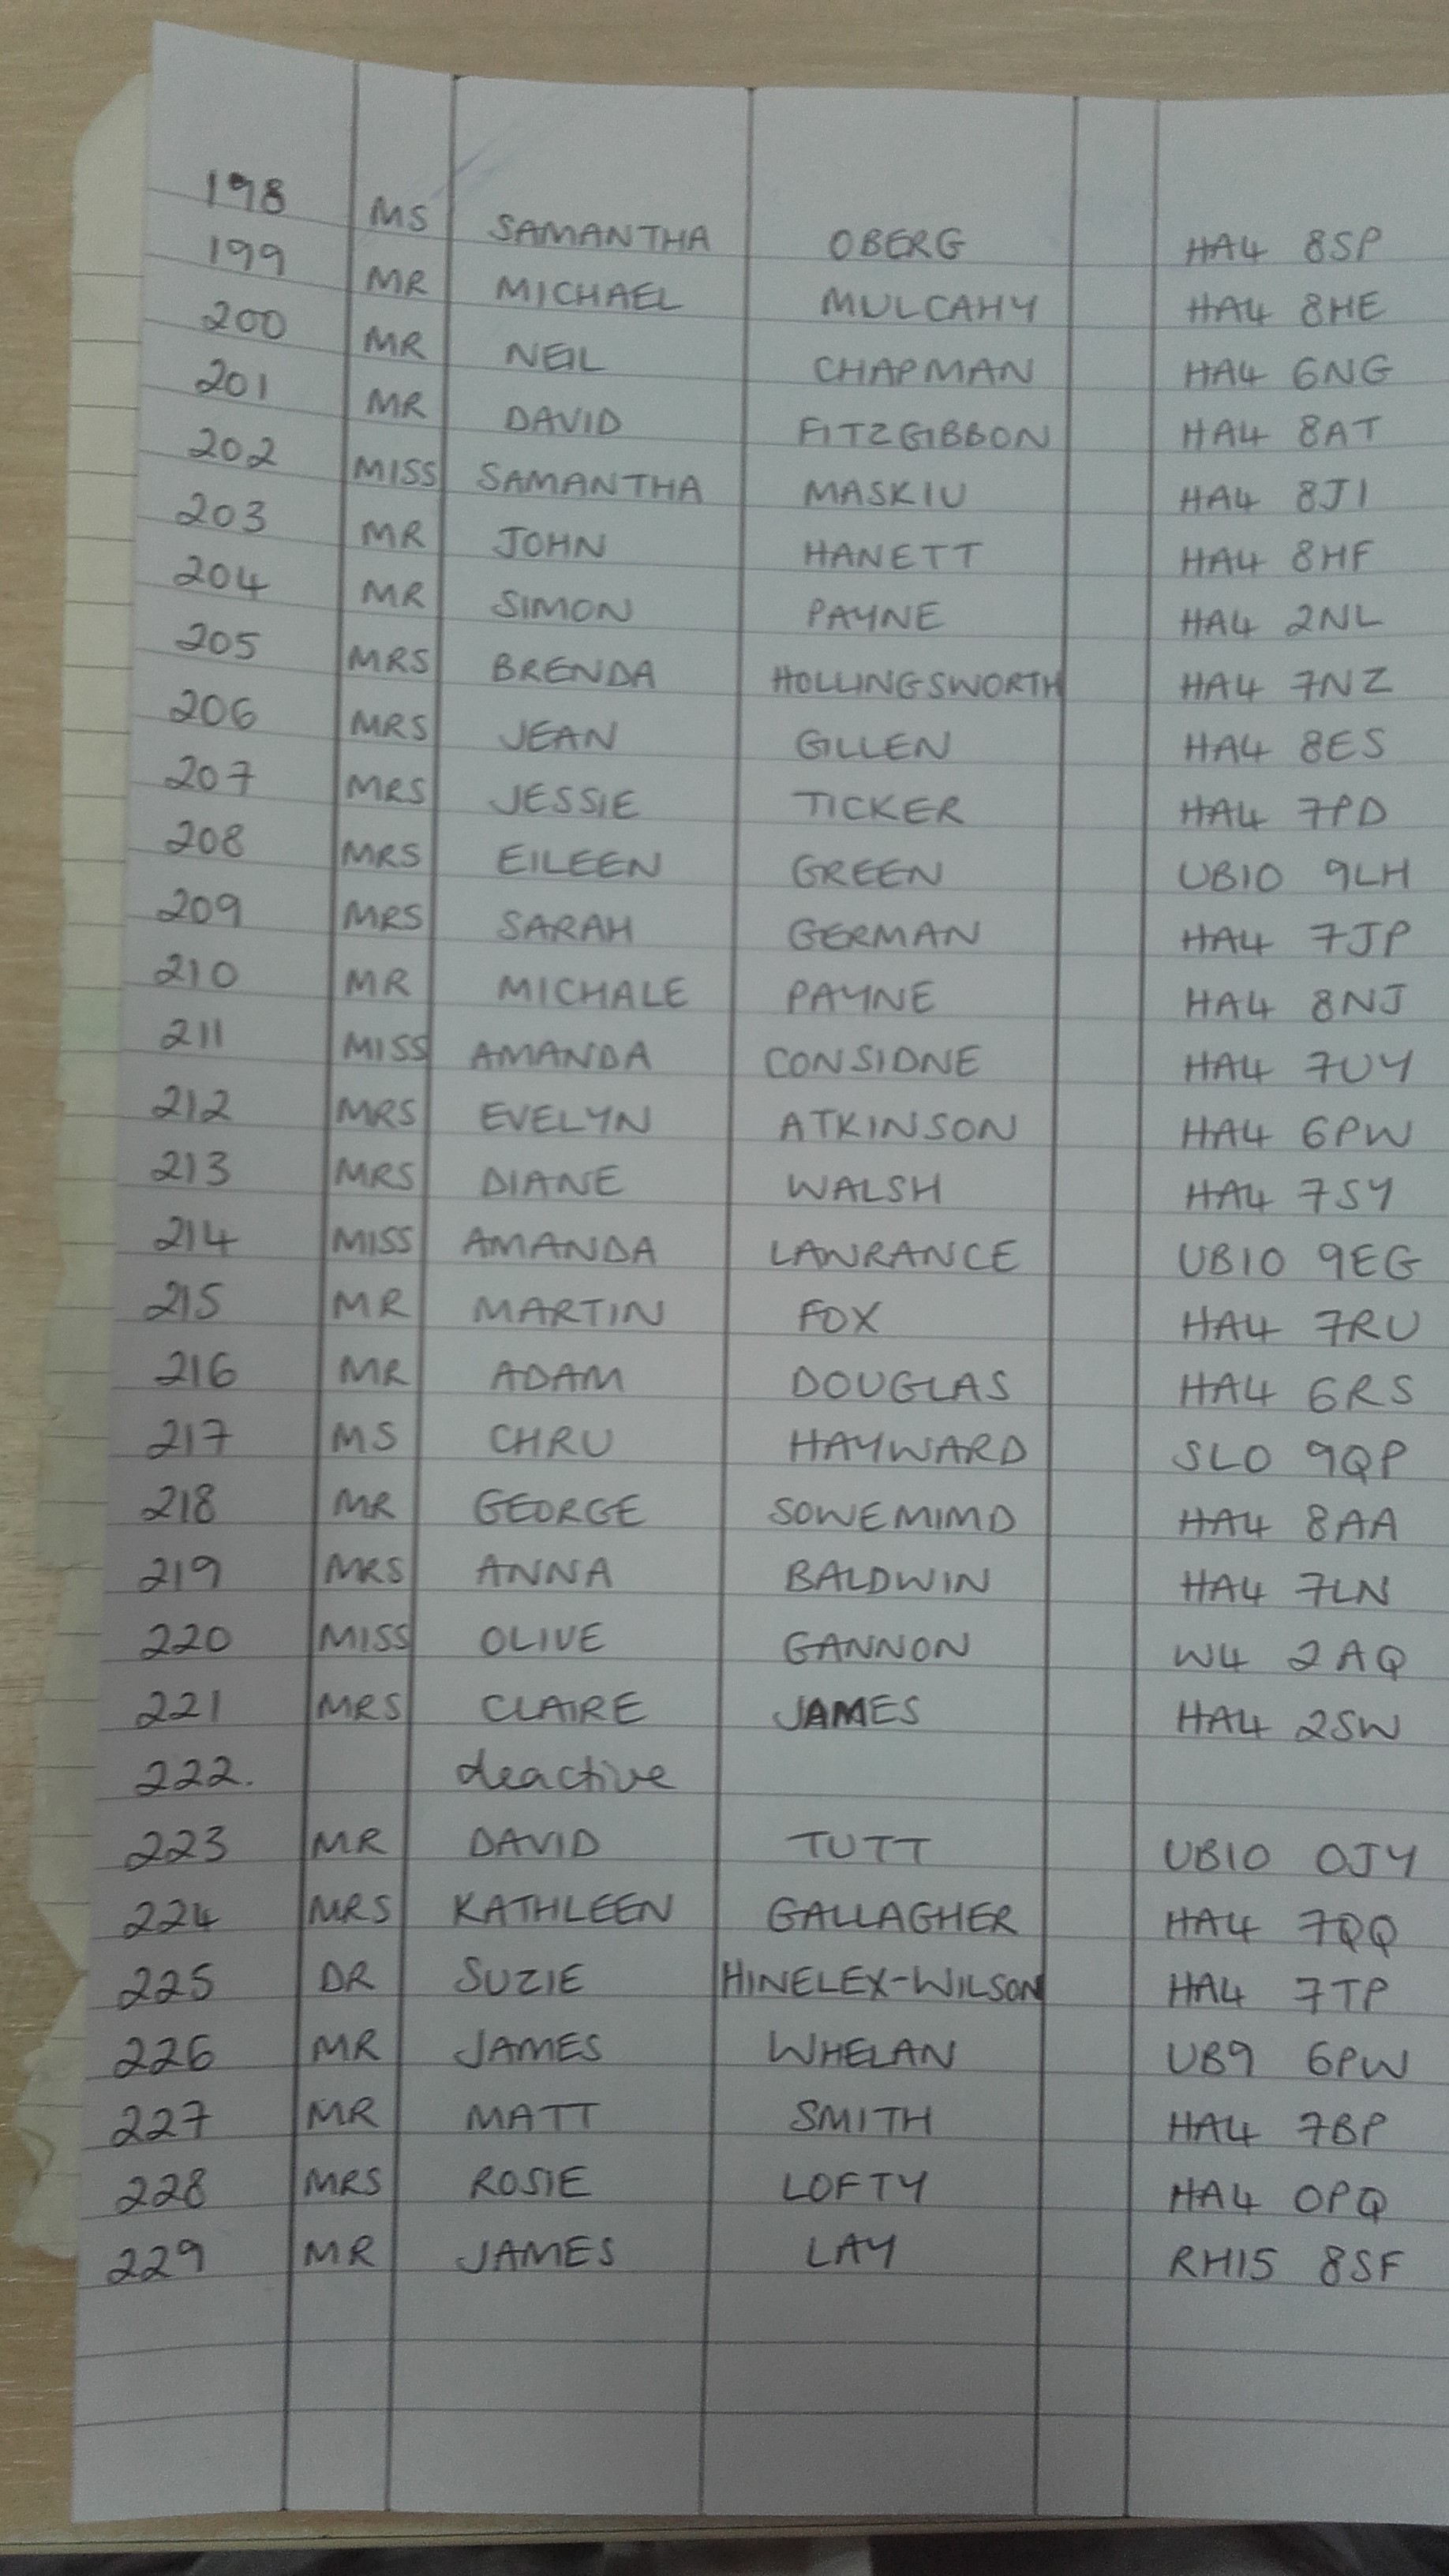 198 MS SAMANTHA OBERG HA4 8SP
199 MR MICHAEL MULCAHY HA4 8HE
200 MR NEIL CHAPMAN HA4 6NG
201 MR DAVID FITZGIBBON HA4 8AT
202 MISS SAMANTHA MASKIU HA4 8JI
203 MR JOHN HANETT HA4 8HF
204 MR SIMON PAYNE HA4 2NL
205 MRS BRENDA HOLLINGSWORTH HA4 7NZ
206 MRS JEAN GILLEN HA4 8ES
207 MRS JESSIE TICKER HA4 7PD
208 MRS EILEEN GREEN UB10 9LH
209 MRS SARAH GERMAN HA4 7JP
210 MR MICHALE PAYNE HA4 8NJ
211 MISS AMANDA CONSIDNE HA4 7UY
212 MRS EVELYN ATKINSON HA4 6PW
213 MRS DIANE WALSH HA4 7SY
214 MISS AMANDA LAWRANCE UB10 9EG
215 MR MARTIN FOX HA4 7RU
216 MR ADAM DOUGLAS HA4 6RS
217 MS CHRU HAYWARD SL0 9QP
218 MR GEORGE SOWEMIMO HA4 8AA
219 MRS ANNA BALDWIN HA4 7LN
220 MISS OLIVE GANNON W4 2AQ
221 MRS CLAIRE JAMES HA4 2SW
222. deactive
223 MR DAVID TUTT UB10 0JY
224 MRS KATHLEEN GALLAGHER HA4 7QQ
225 DR SUZIE HINELEX-WILSON HA4 7TP
226 MR JAMES WHELAN UB9 6PW
227 MR MATT SMITH HA4 7BP
228 MRS ROSIE LOFTY HA4 0PQ
229 MR JAMES LAY RH15 8SF